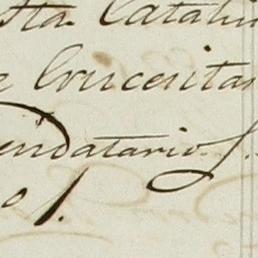 sta Catalin
e Crucenitas
endatario S.
o 1.